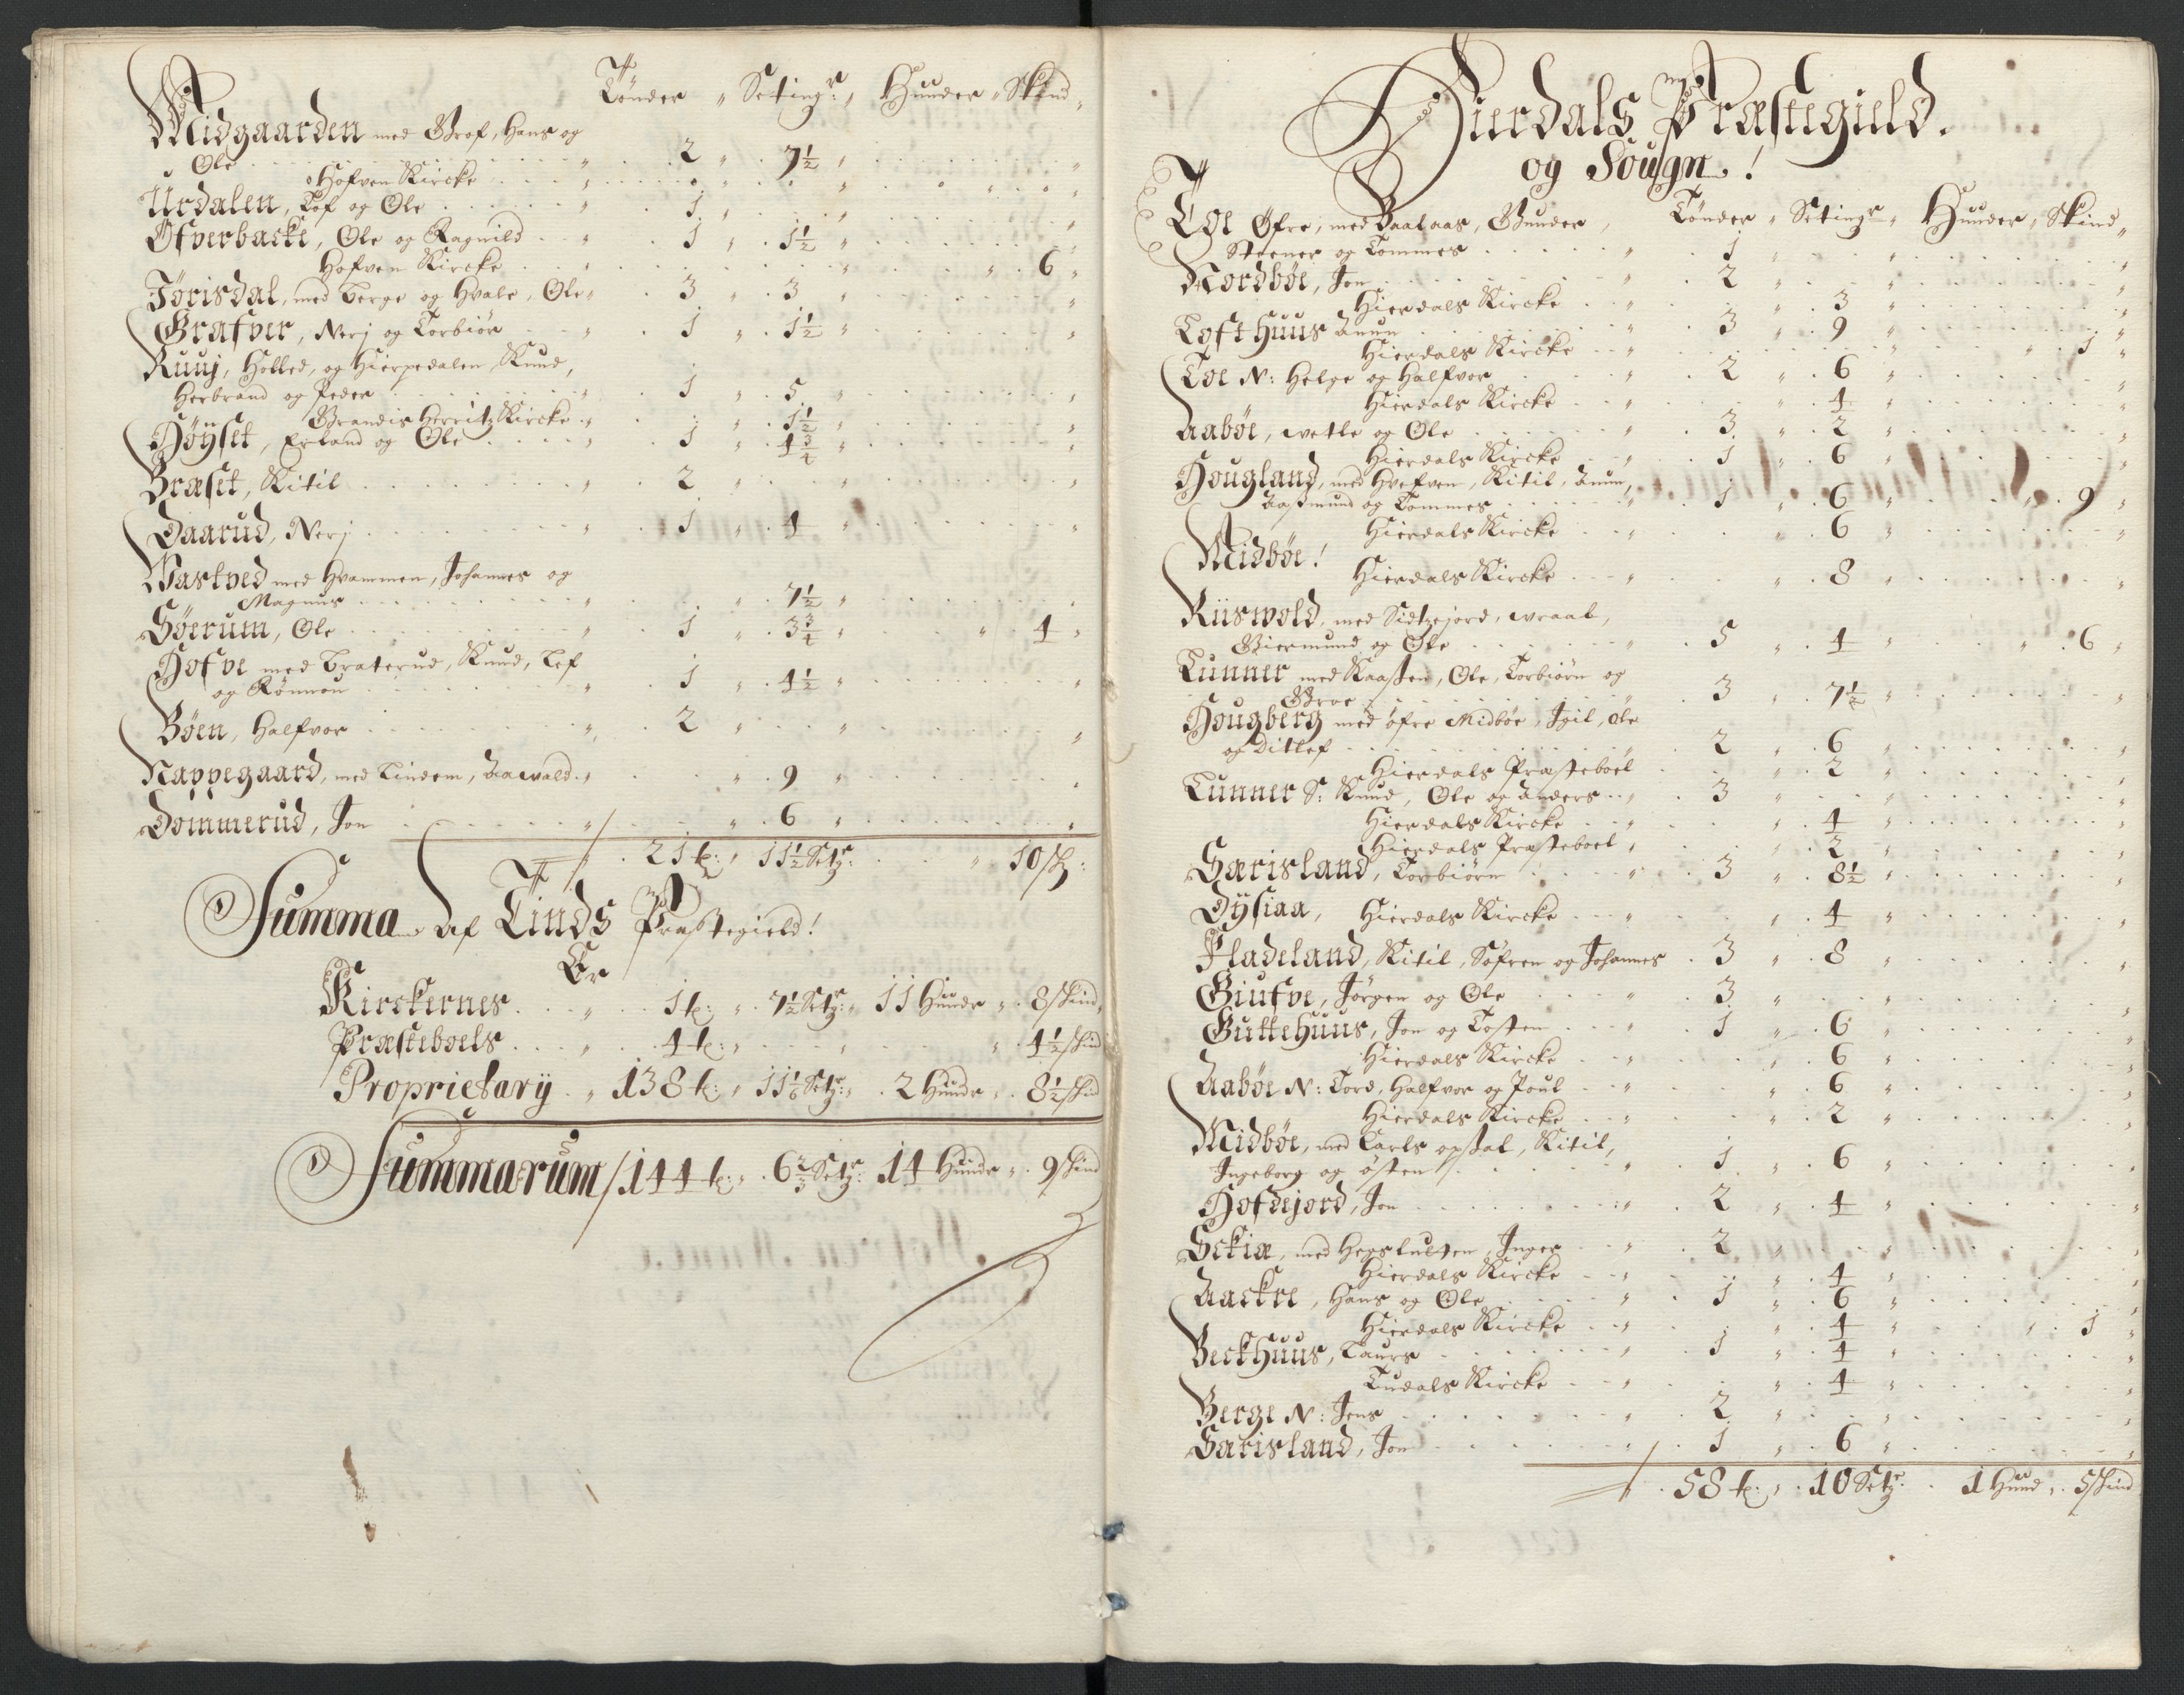 Tønder " Setingr: " Huuder " Skind "
Midgaarden med Grof, Hans og
Ole . . . " . 2 " . 7½ "
Hofven Kircke
Urdalen, Tof og Ole . . . " . 1 "
Ofverbacke, Ole og Ragnild . . " . 1 " . 1½ "
Hofven Kircke . . . " . 6 "
Jørisdal, med Berge og Hvale, Ole " . 3 " . 3 "
Grafver, Nerj og Torbiør . . " . 1 " . 1½ "
Ruuj, Holled, og Hierpedalen, Knud,
Herbrand og Peder . . . 1 " . 5 "
Brandis Herritz Kircke " . 1½ "
Høyset, Erland og Ole . . " . 1 " . 4¾ "
Bræset, Kitil . . . " . 2 "
Daarud, Nerj . . . " . 1 " . 4 "
Wastved med Hvammen, Johannes og
Magnus . . . " . 7½ "
Søerum, Ole . . . " . 1 " . 3¾ " . 4 "
Hofve med Braterud, Knud, Lef
og Rønnou . . . " . 1 " . 4½ "
Bøen, Halfvor . . . " . 2 "
Nappegaard, med Lindem, Aawald " . 9 "
Dommerud, Jon . . . " . 6 "
21 t: " 11½ Setzr: " 10 sk:
Summa Af Tinds Præstegield!
Er
Kirckernes . . " 1 t: " 7½ Setzr: " 11 Huudr " 8 skind
Præsteboels . . " 4 t: " . 4½ skind
Proprietarij . " 138 t: " 11⅙ Setzr: " 2 Huudr " 8½ skind
Summarum / 144 t: " 6⅔ Setzr: 14 Huudr " 9 skind
Hierdals Præstegield.
og Sougn!
Tønder " Setingr " Huuder " Skind "
Toe Øfre, med Baalaas, Gunder,
Steener og Tommes . . . " . 1 "
Nordbøe, Jon . . . " . 2 "
Hierdals Kircke . . " . 3 "
Tofthuus Anun . . . " . 3 " . 9 "
Hierdals Kircke . . " . 1 "
Toe N: Helge og Halfvor . . " . 2 " . 6 "
Hierdals Kircke . . " . 4 "
Aabøe, wetle og Ole . . . " . 3 " . 2 "
Hierdals Kircke . . " . 1 " . 6 "
Hougland, med Hvefven, Kitil, Anun,
Aasmund og Tommes . . . " . 1 " . 6 " . 9 "
Hierdals Kircke . . " . 6 "
Midbøe!
Hierdals Kircke . . " . 8 "
Riiswold, med Sidtzejord, wraal,
Giermund og Ole . . . " . 5 " . 4 " . 6 "
Tunner med Kaasen, Ole, Torbiørn og
Groe . . . 3 " . 7½ "
Hougberg med øfre Midbøe, Igil, Ole
og Ditlef . . . 2 " . 6 "
Hierdals Præsteboel . . " . 2 "
Tunner S: Knud, Ole og Anders . . " . 3 "
Hierdals Kircke . . " . 4 "
Hierdals Præsteboel " . 2 "
Særisland, Torbiørn . . . " . 3 " . 8½ "
Dysiaa, Hierdals Kircke . . " . 4 "
Fladeland, Kitil, Søfren og Johannes . 3 " . 8 "
Giufve, Jørgen og Ole . . . " . 3 "
Guttehuus, Jon og Tosten . . " . 1 " . 6 "
Hierdals Kircke . . " . 6 "
Aabøe N: Tord, Halfvor og Poul . . " . 6 "
Hierdals Kircke . . " . 2 "
Midbøe, med Carls opsal, Kitil,
Ingeborg og østen . . . " . 1 " . 6 "
Hofdejord, Jon . . . " . 2 " . 4 "
Sckiæ, med Hegstulten, Inger . . " . 2 "
Hierdals Kircke . . " . 4 "
Aackre, Hans og Ole . . . " . 1 " . 6 "
Hierdals Kircke . . " . 4 " . 1 "
Beckhuus, Laurs . . . " . 1 " . 4 "
Tudals Kircke . . " . 4 "
Berge N: Jens . . . " . 2 "
Særisland, Jon . . . " . 1 " . 6 "
58 t: " 10 Setzr: . 1 Huud " 5 skind